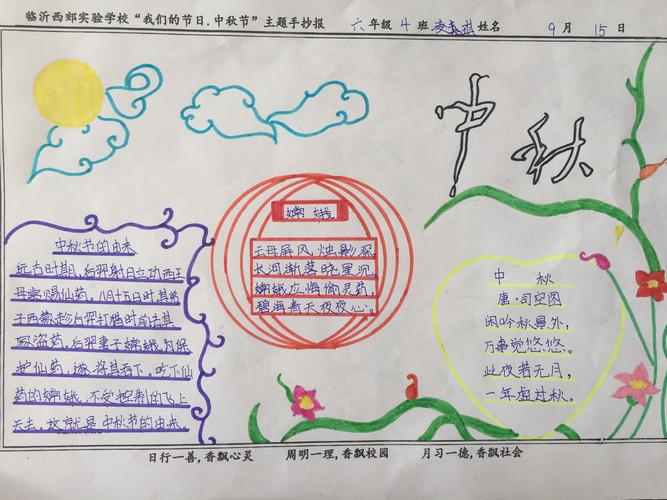 临沂西郊实验学校“我们的节日.中秋节”主题手抄报 六年级 4 班 姓名 9 月 15 日
中秋
中秋节的由来
远古时期,后羿射日立功西王
母娘赐仙药。八月十五日时其
子西蒙趁后羿打猎时前去其
家盗药,后羿妻子嫦娥为保
护仙药,遂将其吞下。吃下仙
药的嫦娥,不受控制的飞上
天去,这就是中秋节的由来。
嫦娥
云母屏风烛影深,
长河渐落晓星沉。
嫦娥应悔偷灵药,
碧海青天夜夜心。
中秋
唐·司空图
闲吟秋景外,
万事觉悠悠。
此夜若无月,
一年虚过秋。
日行一善,香飘心灵 周明一理,香飘校园 月习一德,香飘社会